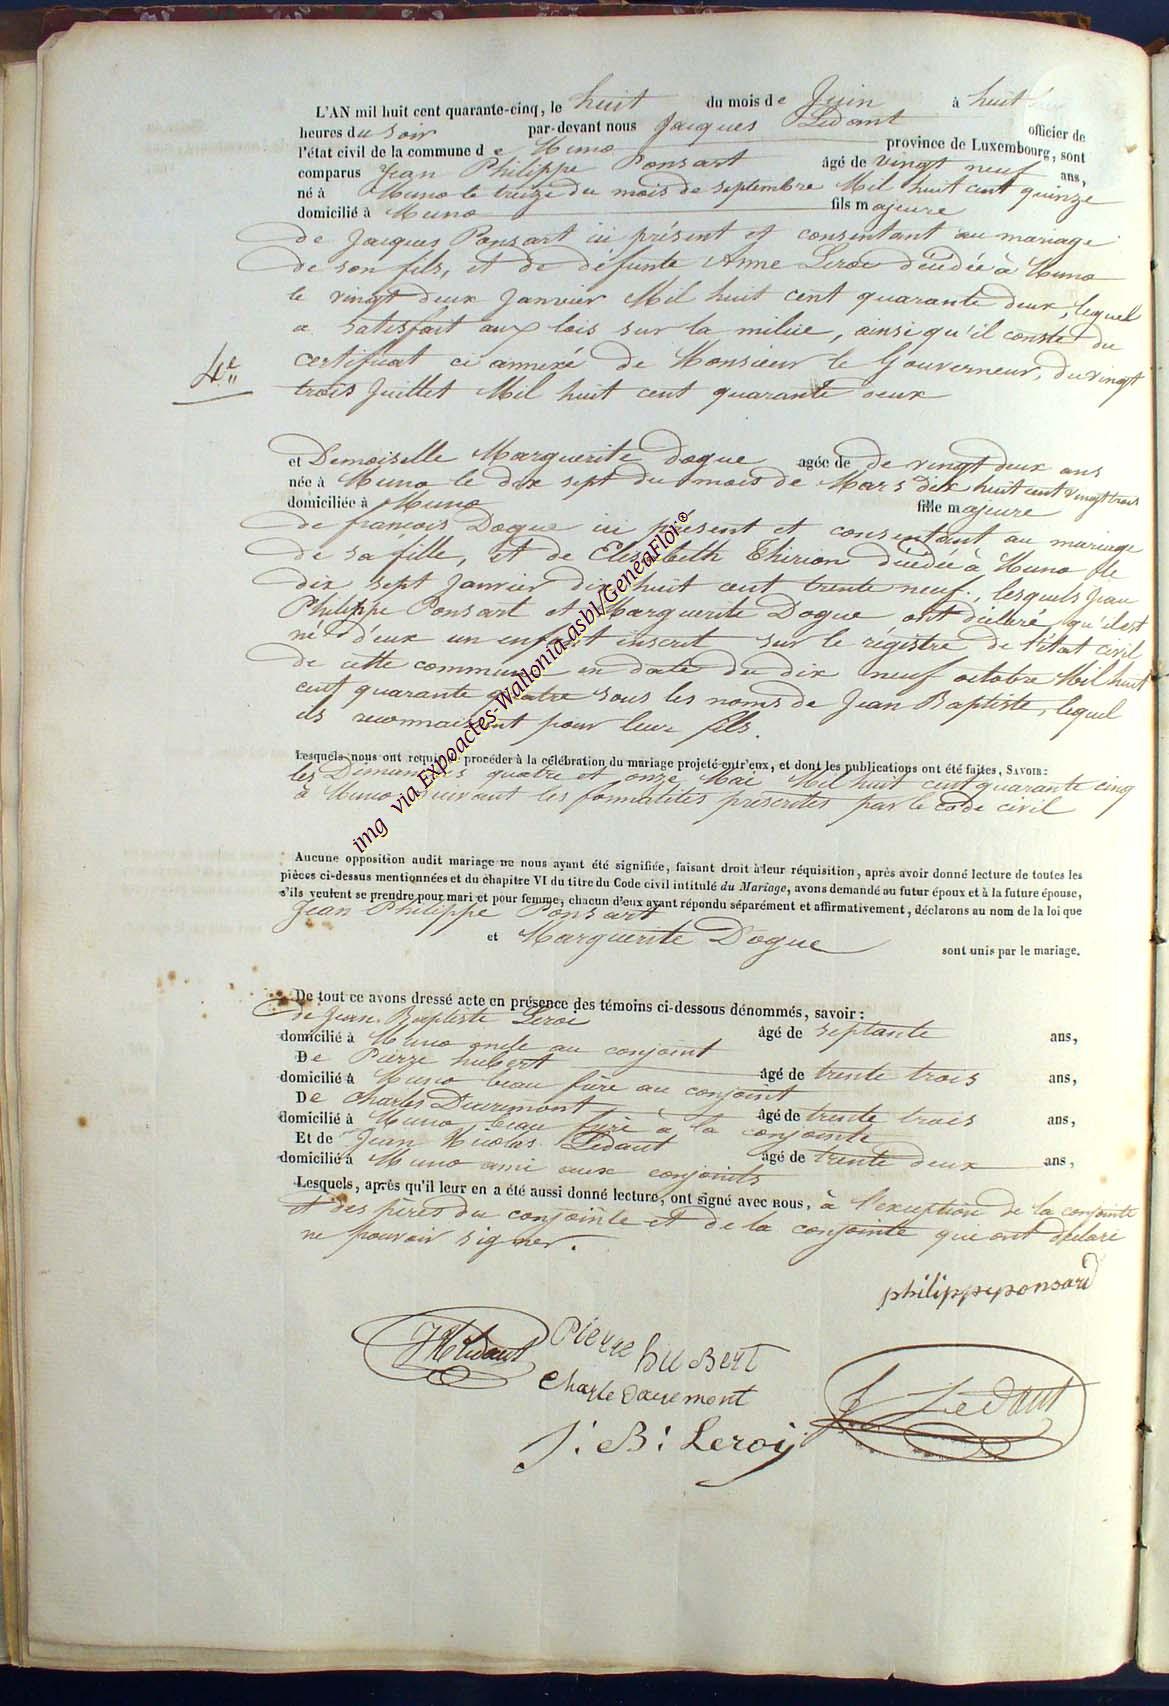 L'AN mil huit cent quarante-cinq, le huit du mois de Juin à huit
heures du soir par-devant nous Jacques Ledant officier de
l'état civil de la commune de Muno province de Luxembourg, sont
comparus Jean Philippe Ponsart âgé de vingt neuf ans,
né à Muno le treize du mois de septembre Mil huit cent quinze
domicilié à Muno fils majeure
de Jacques Ponsart ici présent et consentant au mariage
de son fils, et de défunte Anne Leroi décédée à Muno
le vingt deux Janvier Mil huit cent quarante deux, lequel
a satisfait aux lois sur la milice, ainsi qu'il conste du
certificat ci annexé de Monsieur le Gouverneur, du vingt
4e
trois Juillet Mil huit cent quarante deux
et Demoiselle Marguerite Dogue agée de de vingt deux ans
née à Muno le dix sept du mois de Mars dix huit cent vingt trois
domiciliée à Muno fille majeure
de françois Dogue ici présent et consentant au mariage
de sa fille, et de Elisabeth Thirion décédée à Muno le
dix sept Janvier dix huit cent trente neuf, lesquels Jean
Philippe Ponsart et Marguerite Dogue ont déclaré qu'il est
né d'eux un enfant inscrit sur le régistre de l'état civil
de cette commune en date du dix neuf octobre Mil huit
cent quarante quatre sous les noms de Jean Baptiste, lequel
ils reconnaissent pour leur fils.
Lesquels nous ont requis de procéder à la célébration du mariage projeté entr'eux, et dont les publications ont été faites, SAVOIR:
les Dimanches quatre et onze Mai Mil huit cent quarante cinq
à Muno suivant les formalités prescrites par le code civil
Aucune opposition audit mariage ne nous ayant été signifiée, faisant droit à leur réquisition, après avoir donné lecture de toutes les
pièces ci-dessus mentionnées et du chapitre VI du titre du Code civil intitulé du Mariage, avons demandé au futur époux et à la future épouse,
s'ils veulent se prendre pour mari et pour femme, chacun d'eux ayant répondu séparément et affirmativement, déclarons au nom de la loi que
Jean Philippe Ponsart
et Marguerite Dogue sont unis par le mariage.
De tout ce avons dressé acte en présence des témoins ci-dessous dénommés, savoir:
de Jean Baptiste Leroi âgé de septante ans,
domicilié à Muno oncle au conjoint
De Pierre hubert âgé de trente trois ans,
domicilié à Muno beau frère au conjoint
De Charles Dauremont âgé de trente trois ans,
domicilié à Muno beau frère à la conjointe
Et de Jean Nicolas Ledant âgé de trente deux ans,
domicilié à Muno ami aux conjoints
Lesquels, après qu'il leur en a été aussi donné lecture, ont signé avec nous, à l'exception de la conjointe
et des pères du conjointe et de la conjointe qui ont déclaré
ne pouvoir signer.
philippe ponsard
JNLedant Pierre huBert
Charle dauremont J Ledant
J: B: Leroij
img via Expoactes-Wallonia.asbl/GeneaFlor©